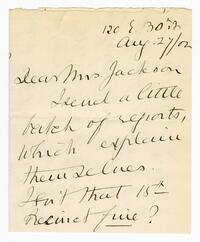 120 E 30 St
Aug. 27/02
Dear Mrs. Jackson
I send a little
batch of reports,
which explain
themselves.
Isn't that 15th
Precinct fine?